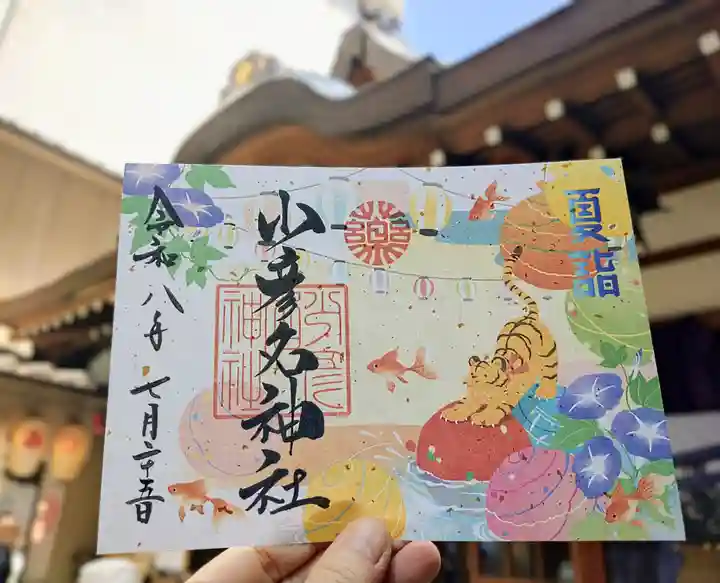 夏詣
少彦名神社
少彦名
神社
令和八年七月二十五日